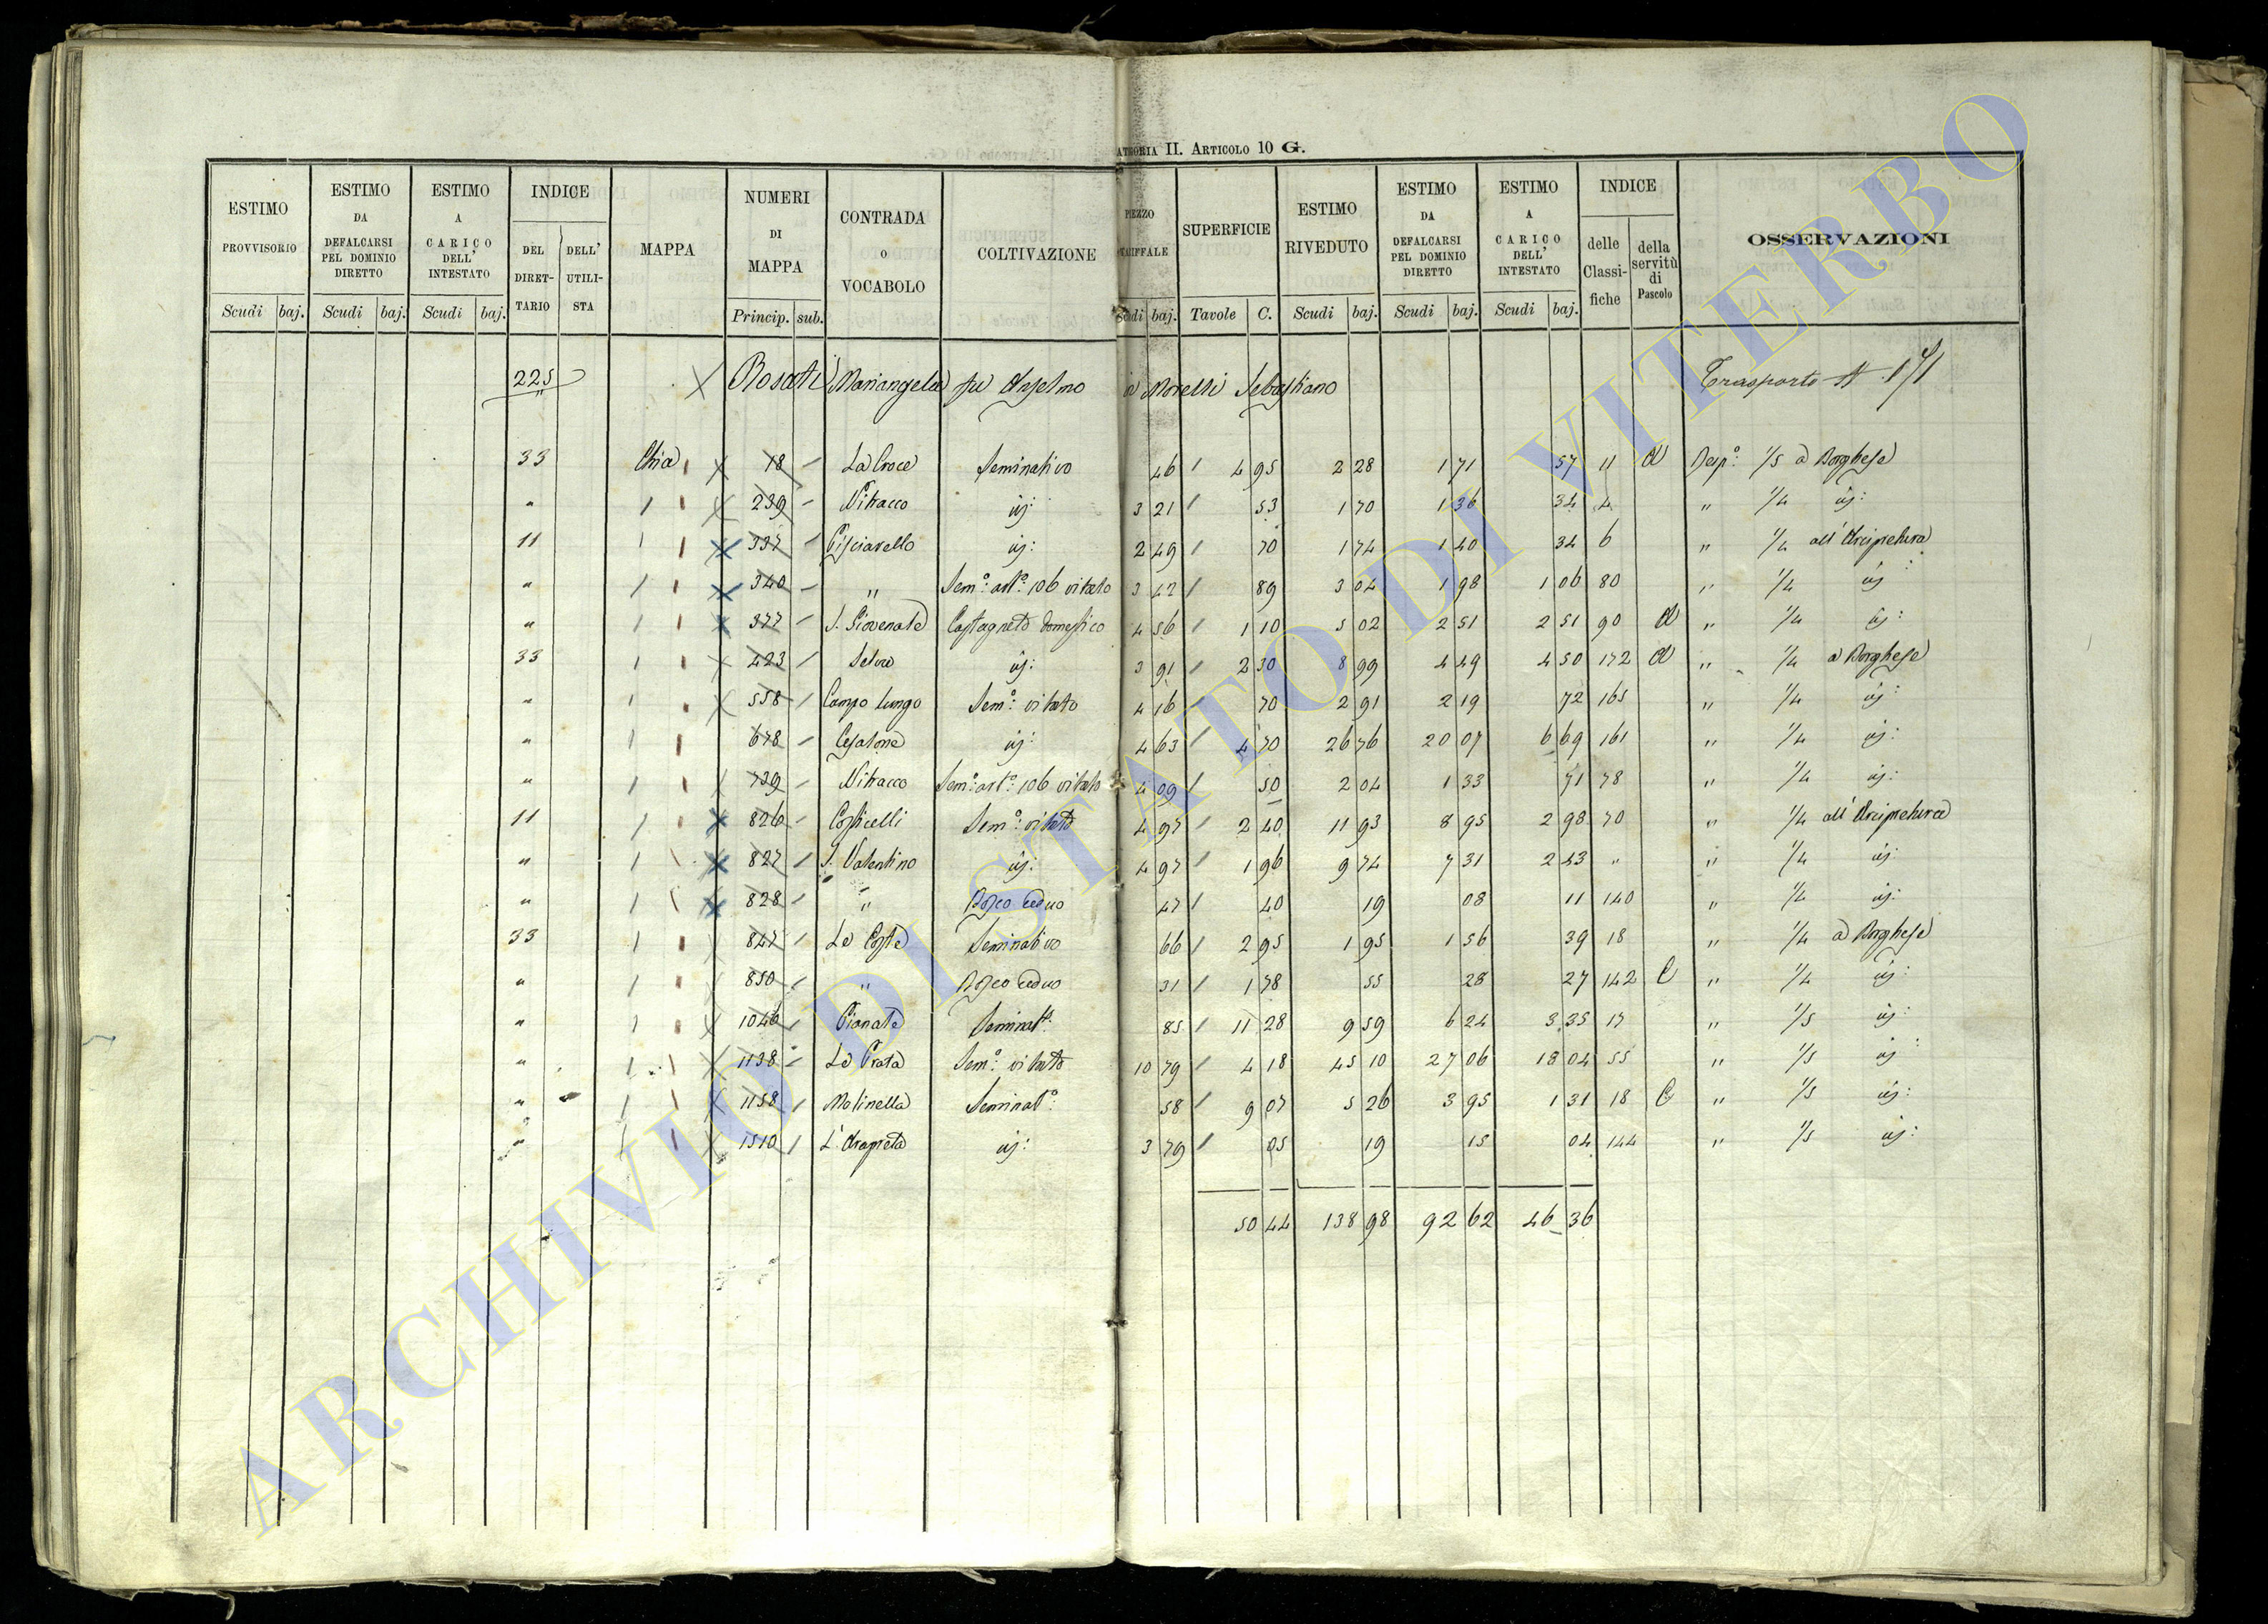 ATEGORIA II. ARTICOLO 10 G.
ESTIMO PROVVISORIO | ESTIMO DA DEFALCARSI PEL DOMINIO DIRETTO | ESTIMO A CARICO DELL' INTESTATO | INDICE | MAPPA | NUMERI DI MAPPA | CONTRADA O VOCABOLO | COLTIVAZIONE | PREZZO TARIFFALE | SUPERFICIE | ESTIMO RIVEDUTO | ESTIMO DA DEFALCARSI PEL DOMINIO DIRETTO | ESTIMO A CARICO DELL' INTESTATO | INDICE | OSSERVAZIONI
DEL DIRETTARIO | DELL' UTILISTA | delle Classifiche | della servitù di Pascolo
Scudi baj. | Scudi baj. | Scudi baj. | Princip. sub. | Scudi baj. | Tavole C. | Scudi baj. | Scudi baj. | Scudi baj.
225 Rosati Mariangela fu Anselmo in Morelli Sebastiano Trasporto N 171
33 Chia 18 La Croce Seminativo 46 4 95 2 28 1 71 57 11 A Risp: 1/5 a Borghese
" 239 Vitracco id: 3 21 53 1 70 1 36 34 4 " 1/4 id:
11 337 Pisciarello id: 2 49 70 1 74 1 40 34 6 " 1/4 all'Arcipretura
" 340 " Sem.o art.o 106 vitato 3 42 89 3 04 1 98 1 06 80 " 1/4 id:
" 377 S. Giovenale Castagneto domestico 4 56 1 10 5 02 2 51 2 51 90 A " 1/4 id:
33 423 Selva id: 3 91 2 30 8 99 4 49 4 50 172 A " 1/4 a Borghese
" 558 Campo lungo Sem.o vitato 4 16 70 2 91 2 19 72 165 " 1/4 id:
" 678 Cesalone id: 4 63 4 70 26 76 20 07 6 69 161 " 1/4 id:
" 729 Vitracco Sem.o art.o 106 vitato 4 09 50 2 04 1 33 71 78 " 1/4 id:
11 826 Corticelli Sem.o vitato 4 97 2 40 11 93 8 95 2 98 70 " 1/4 all'Arcipretura
" 827 S. Valentino id: 4 97 1 96 9 74 7 31 2 43 " " 1/4 id:
" 828 " Bosco ceduo 47 40 19 08 11 140 " 1/4 id:
33 847 Le Coste Seminativo 66 2 95 1 95 1 56 39 18 " 1/4 a Borghese
" 850 " Bosco ceduo 31 1 78 55 28 27 142 C " 1/4 id:
" 1046 Pianate Seminat.o 85 11 28 9 59 6 24 3 35 17 " 1/5 id:
" 1138 Le Prata Sem.o vitato 10 79 4 18 45 10 27 06 18 04 55 " 1/5 id:
" 1158 Molinella Seminat.o 58 9 07 5 26 3 95 1 31 18 C " 1/5 id:
" 1510 id: 3 79 05 19 15 04 144 " 1/5 id:
50 44 138 98 92 62 46 36
ARCHIVIO DI STATO DI VITERBO